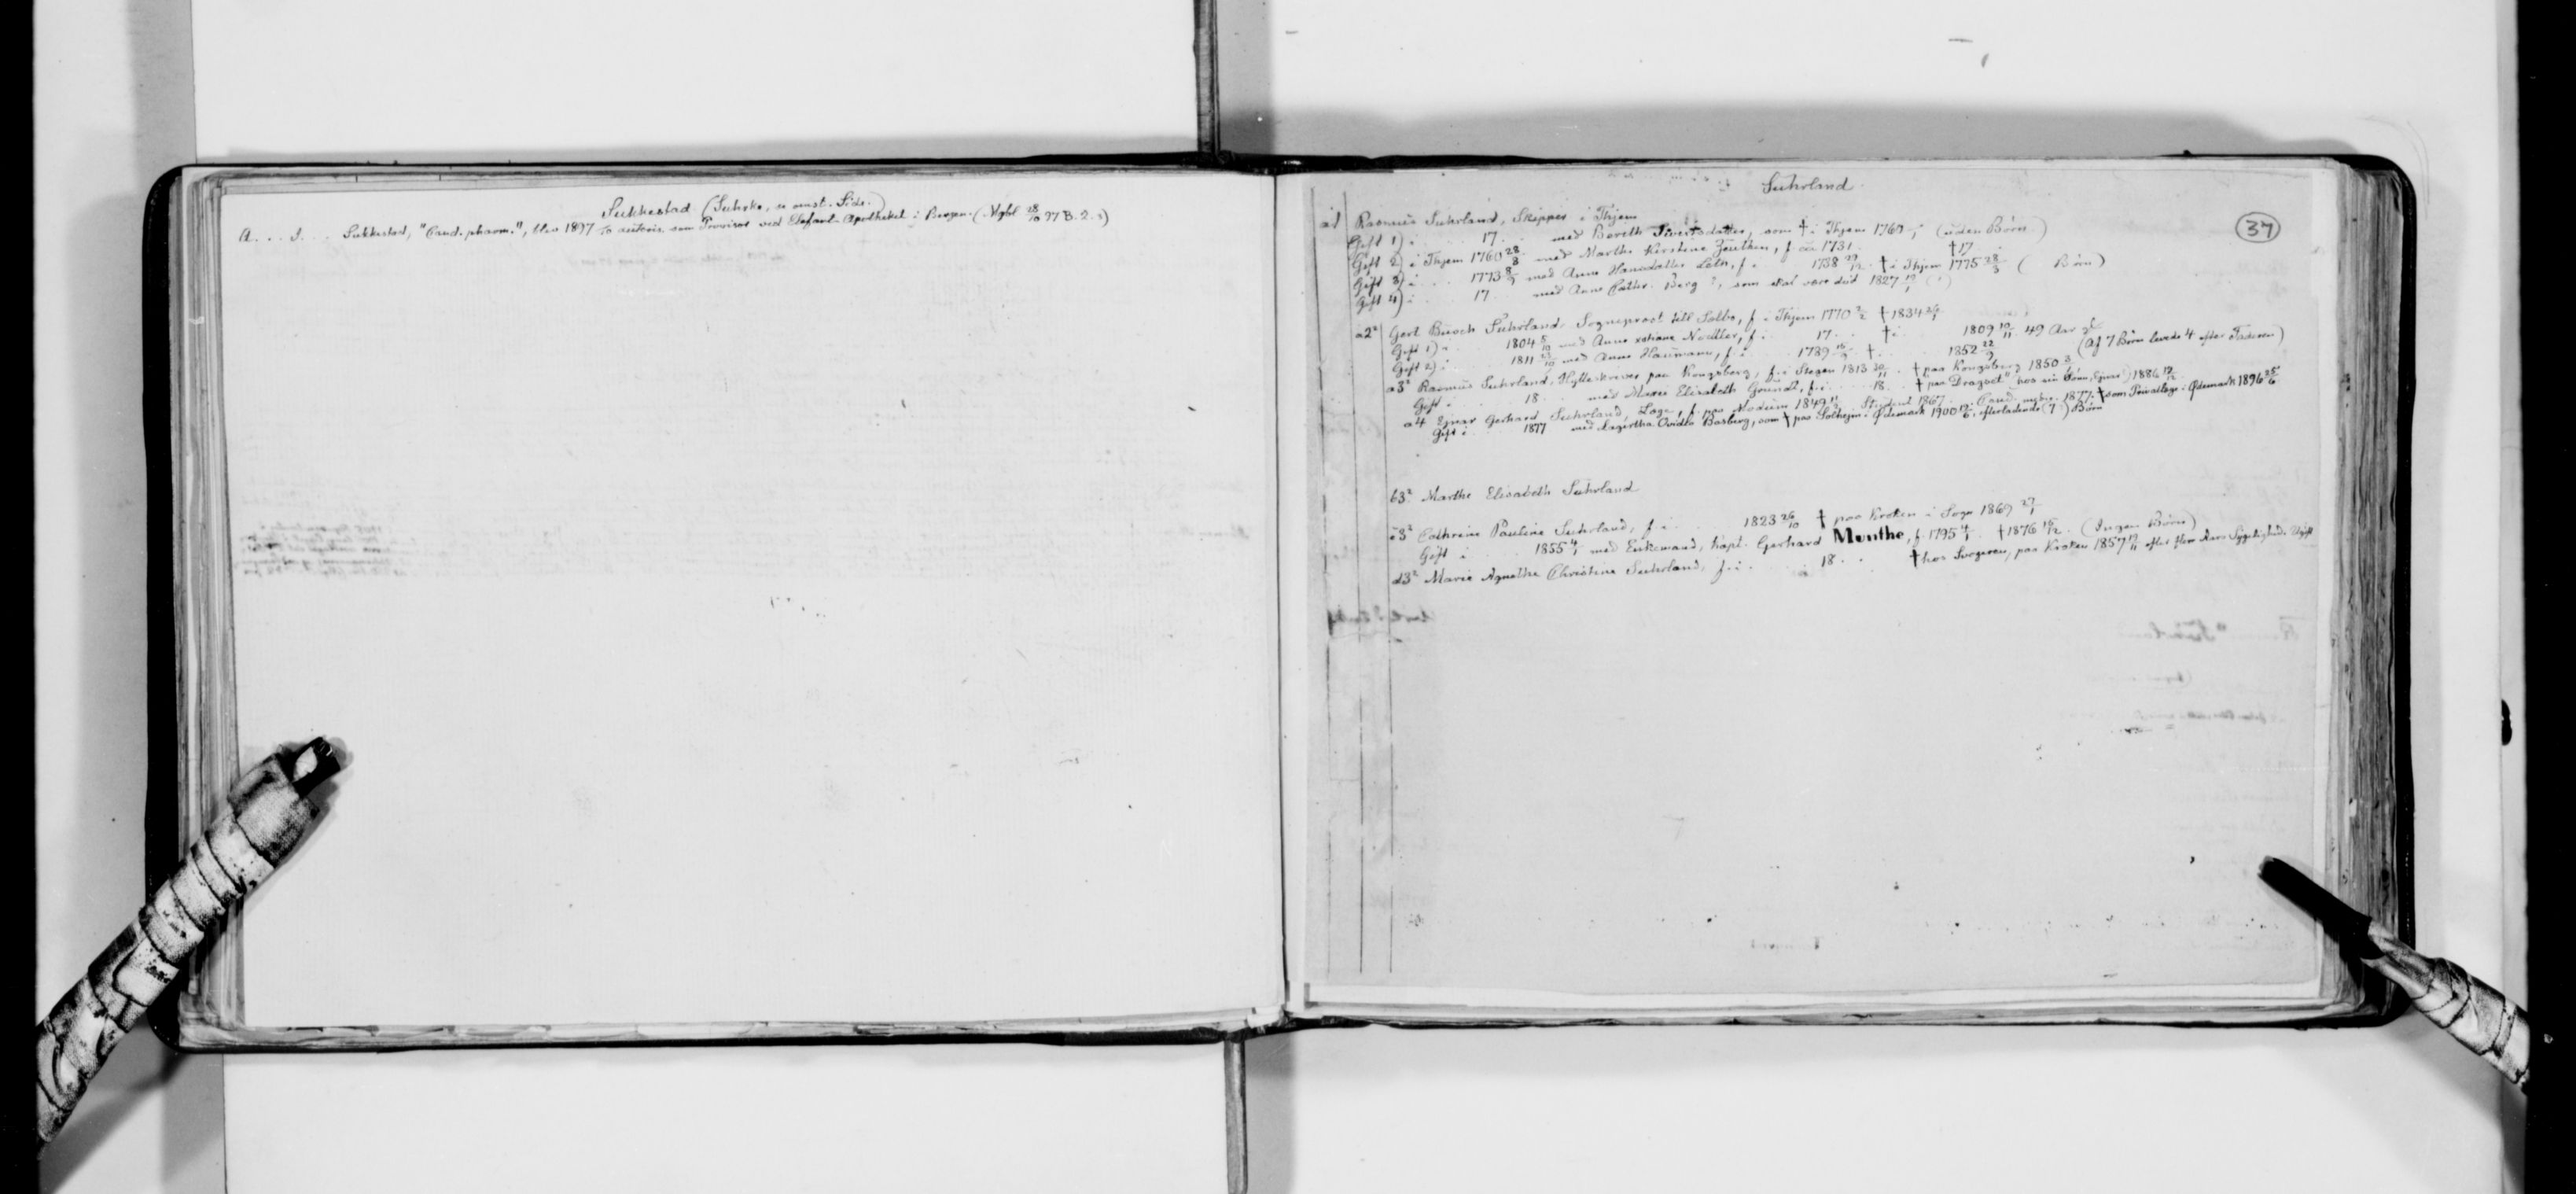 Sukkestad. (Suhrke, se omst. Side.)
A... S... Sukkestad, "Cand. pharm.", blev 1897 autoris. som Provisor ved Løfant-Apotheket i Bergen. (Mgbl 28/10 97 B. 2.)
Suhrland.
37
a1 Rasmus Suhrland, Skipper i Thjem
Gift 1) i 17 med Bereth Sivertsdatter, som † i Thjem 1760, (uden Børn)
Gift 2) i Thjem 1760 28/8 med Marthe Kirstine Zeuthen, f. ca 1731. †17
Gift 3) i 1773 8/9 med Anne Hansdatter Leth, f. 1738 29/12 † i Thjem 1775 28/3 ( Børn)
Gift 4) i 17 med Anne Cathr. Berg ?, som skal være død 1827
a2² Gert Busch Suhrland. Sogneprest till Solbø, f. i Thjem 1770 † 1834
Gift 1) i 1804 med Anne xstiane Noutler, f. i 17 † i 1809 10/11 49 Aar gl.
Gift 2) i 1811 med Anne Haumann, f. i 1789 † 1852 22/9 (Af 7 Børn levede 4 efter Faderen)
a3² Rasmus Suhrland, Hytteskriver paa Kongsberg, f. i Stegen 1813 † paa Kongsberg 1850
Gift i 18 med Maren Elisabeth Grundt, f. i 18 † paa Dragset hos sin Søn, Ejnar, 1886
a4 Ejnar Gerhard Suhrland, Læge, f. paa Modum 1849, Student 1867. Cand. 1877. † som Privatlæge i Ødemark 1896
Gift i 1877 med Ragertha Ovidia Basberg, som † paa Solhejm i Ødemark 1900, efterladende (7) Børn
b3² Marthe Elisabeth Suhrland
c3² Cathrine Pauline Suhrland, f. i 1823 26/10 † paa Kroken i Sogn 1869 27/1
Gift i 1855 4/1 med Enkemand, Kapt. Gerhard Munthe, f. 1795 † 1876 15/12. (Ingen Børn)
d3² Marie Agnethe Christine Suhrland, f. i 18 † hos Svogeren, paa Kroken 1857 efter flere Aars Sygelighed. Ugift